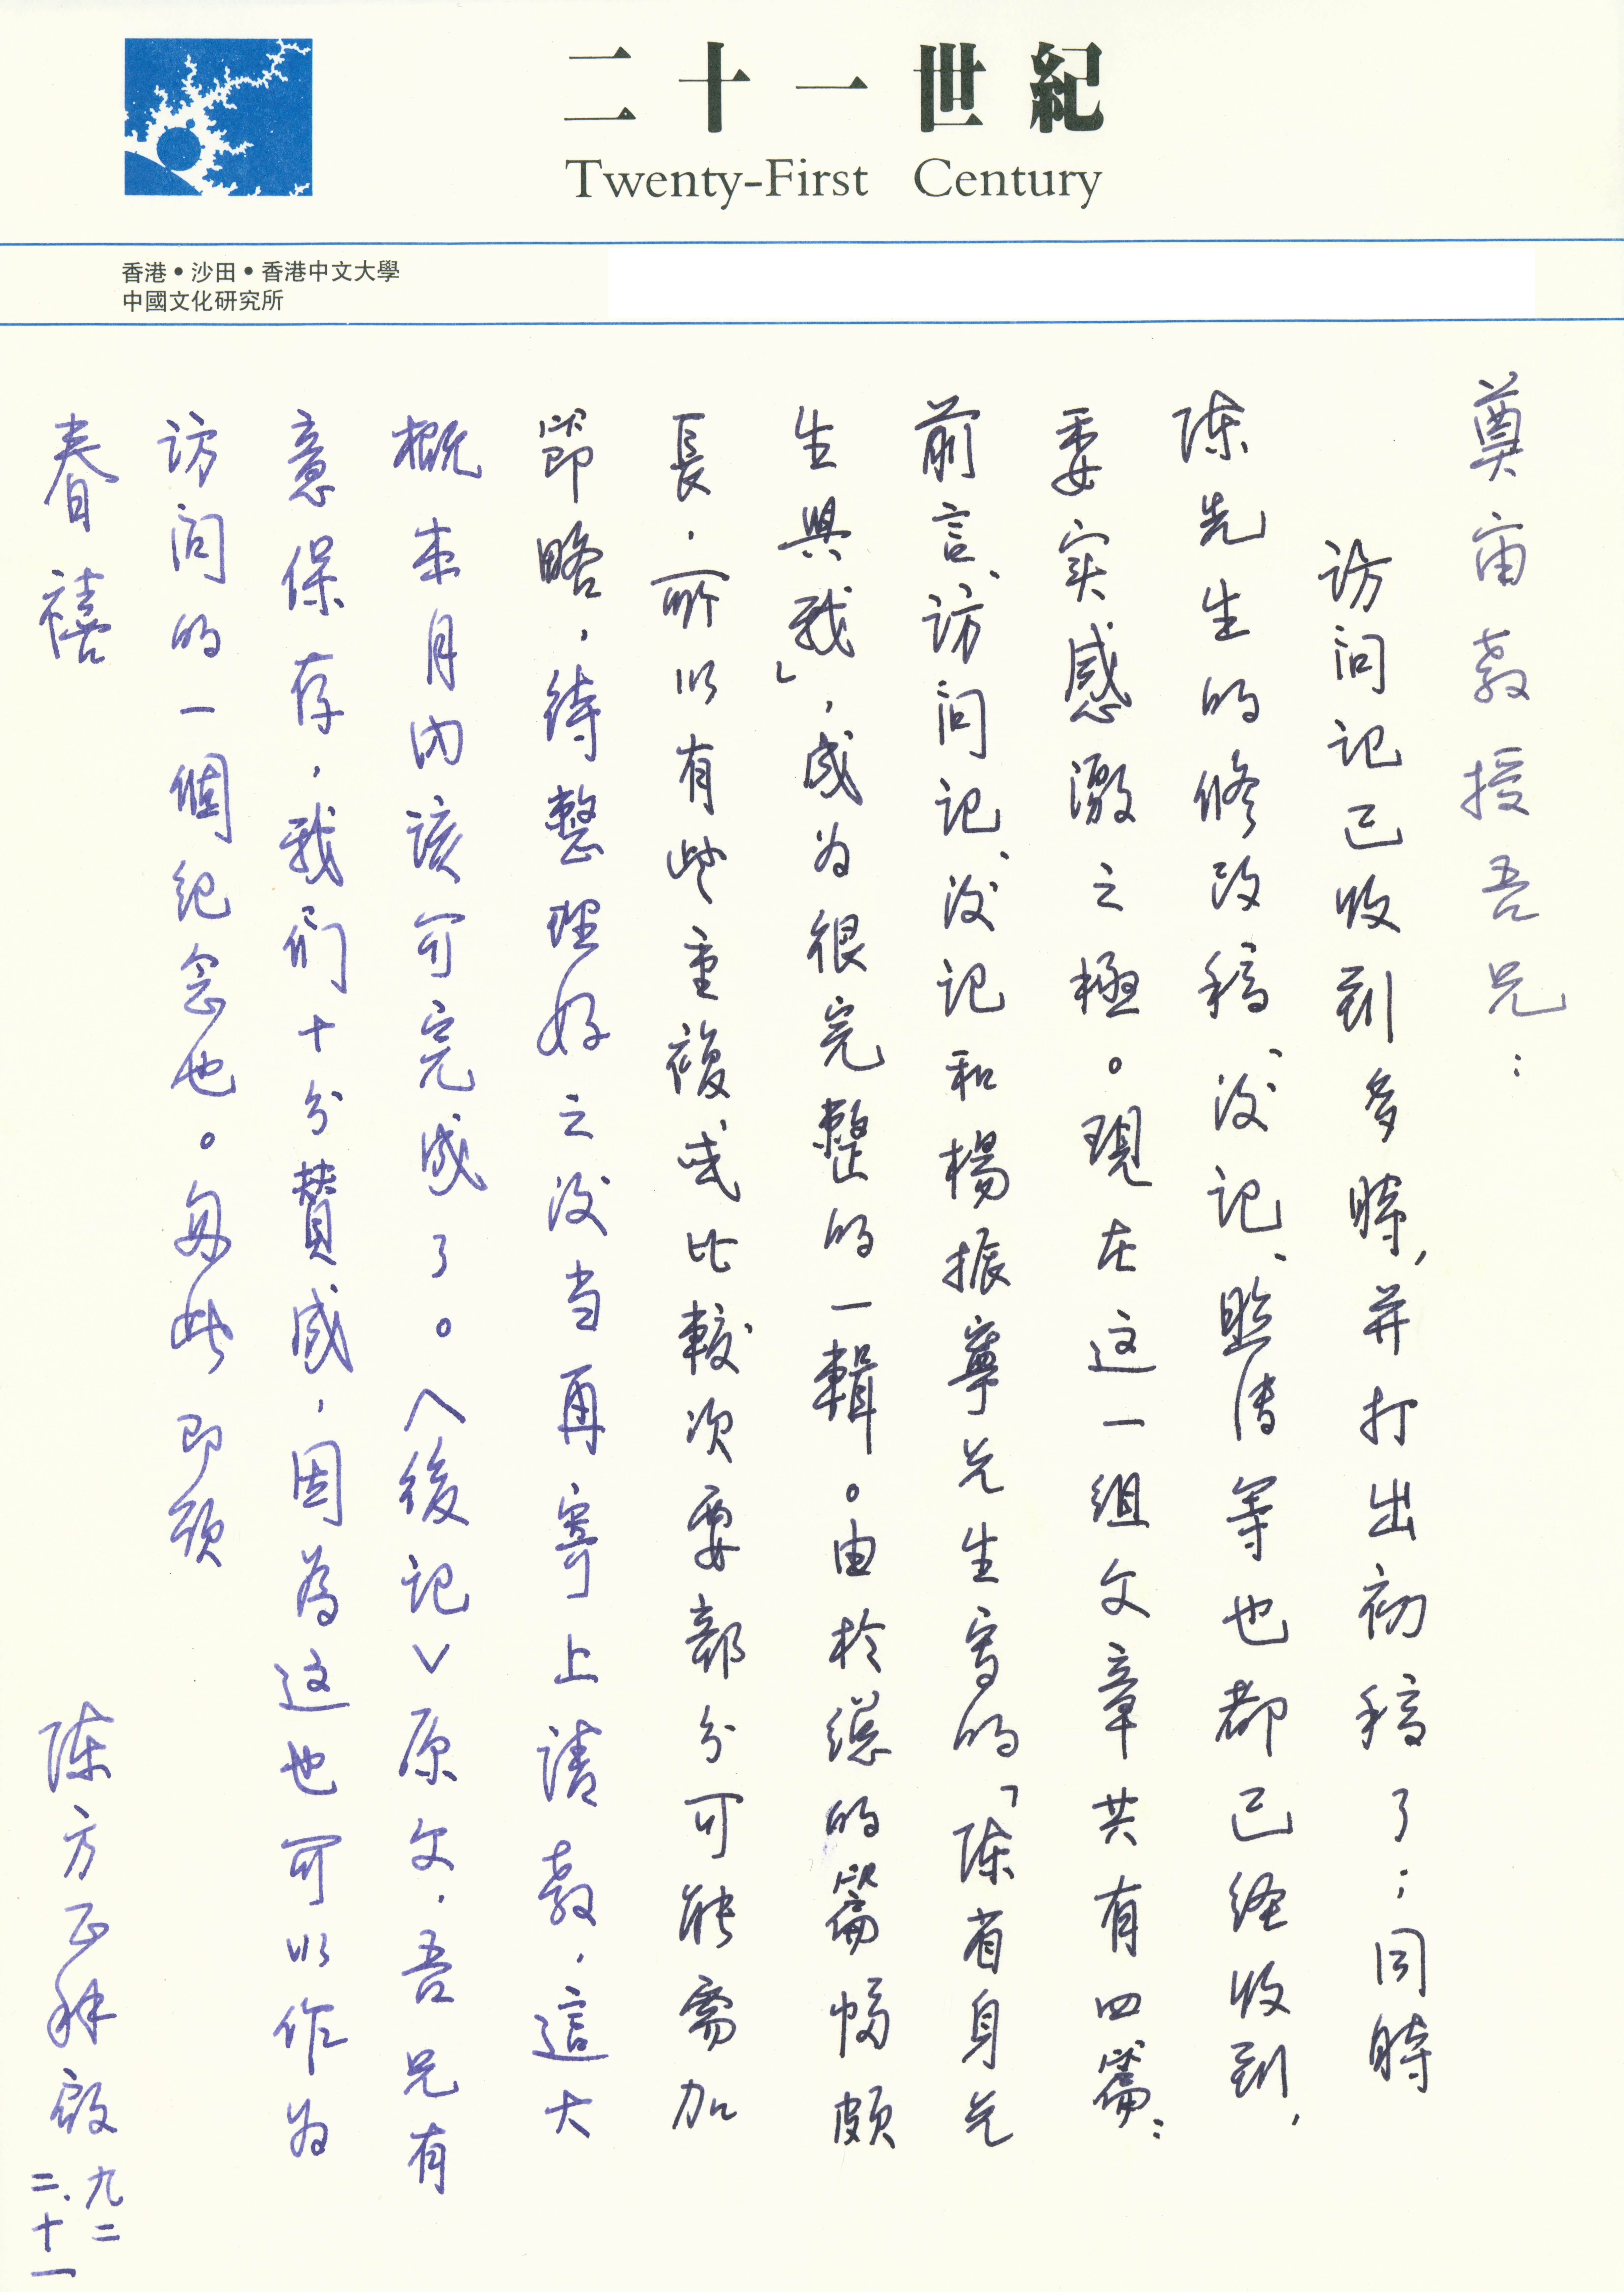 二十一世紀
Twenty-First Century
香港•沙田•香港中文大學
中國文化研究所
奠宙教授吾兄：
访问记已收到多時，并打出初稿了；同時
陈先生的修改稿、後记、照片等也都已经收到，
委实感激之極。現在这一组文章共有四篇：
前言、访问记、後记和楊振寧先生写的「陈省身先
生與我」，成为很完整的一輯。由於總的篇幅頗
長，所以有些重複或比較次要部分可能需加
節略，待整理好之後当再寄上请教，這大
概本月内该可完成了。〈後记〉原文，吾兄有
意保存，我们十分贊成，因為这也可以作为
访问的一個纪念也。匆此 即頌
春禧
陈方正拜啟
九二
二.十一